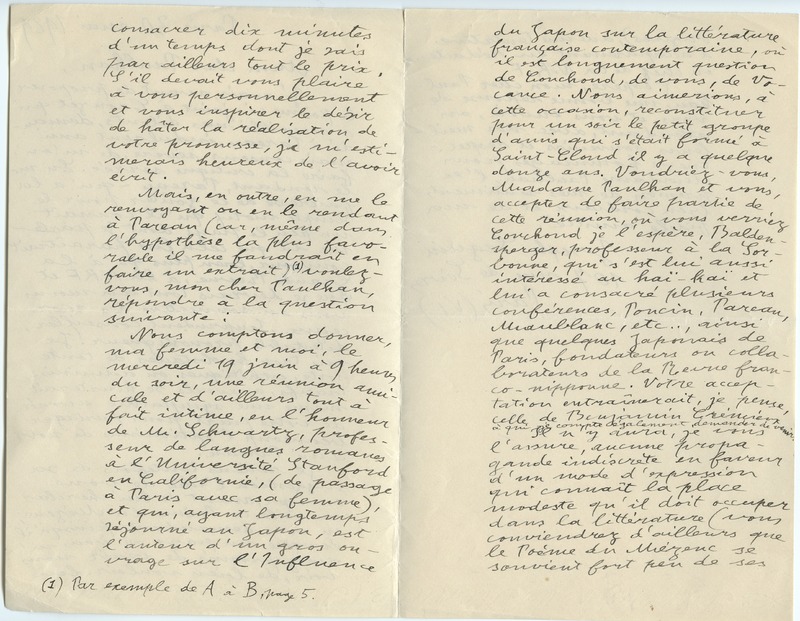 consacrer dix minutes
d'un temps dont je sais
par ailleurs tout le prix.
S'il devait vous plaire
à vous personnellement
et vous inspirer le désir
de hâter la réalisation de
votre promesse, je m'esti-
merais heureux de l'avoir
écrit.
Mais, en outre, en me le
renvoyant ou en le rendant
à Pareau (car, même dans
l'hypothèse la plus favo-
rable il me faudrait en
faire un extrait) (1) voulez-
vous, mon cher Paulhan,
répondre à la question
suivante :
Nous comptons donner,
ma femme et moi, le
mercredi 19 juin à 9 heures
du soir, une réunion ami-
cale et d'ailleurs tout à
fait intime, en l'honneur
de M. Schwartz, profes-
seur de langues romanes
à l'Université Stanford
en Californie, (de passage
à Paris avec sa femme),
et qui, ayant longtemps
séjourné au Japon, est
l'auteur d'un gros ou-
vrage sur l'Influence
(1) Par exemple de A à B, page 5.
du Japon sur la littérature
française contemporaine, où
il est longuement question
de Couchoud, de vous, de Vo-
cance. Nous aimerions, à
cette occasion, reconstituer
pour un soir le petit groupe
d'amis qui s'était formé à
Saint-Cloud il y a quelque
douze ans. Voudriez-vous,
Madame Paulhan et vous,
accepter de faire partie de
cette réunion, où vous verriez
Couchoud je l'espère, Balden-
sperger, professeur à la Sor-
bonne, qui s'est lui aussi
intéressé au haï-kaï et
lui a consacré plusieurs
conférences, Poncin, Pareau,
Maublanc, etc.., ainsi
que quelques Japonais de
Paris, fondateurs ou colla-
borateurs de la Revue fran-
co-nipponne. Votre accep-
tation entraînerait, je pense,
celle de Benjamin Crémieux
à qui je compte également demander de venir.
Il n'y aura, je vous
l'assure, aucune propa-
gande indiscrète en faveur
d'un mode d'expression
qui connaît la place
modeste qu'il doit occuper
dans la littérature (vous
conviendrez d'ailleurs que
le Poème du Mézenc se
souvient fort peu de ses